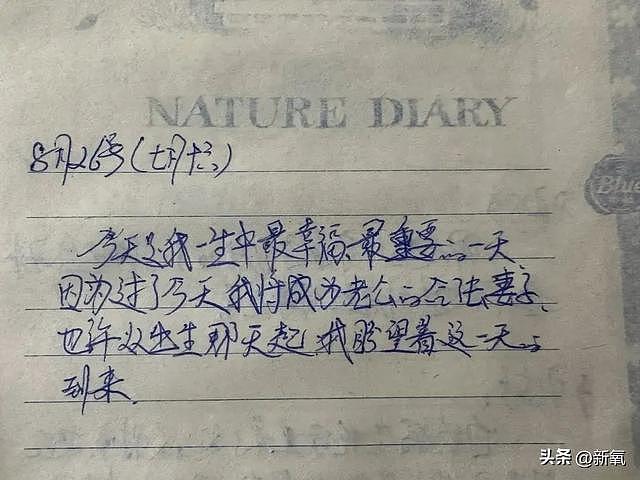 NATURE DIARY
8月26号(七月十三)
Blue
今天是我一生中最幸福、最重要的一天
因为过了今天我将成为老公的合法妻子,
也许从出生那天起,我盼望着这一天的
到来.
头条 @新氧